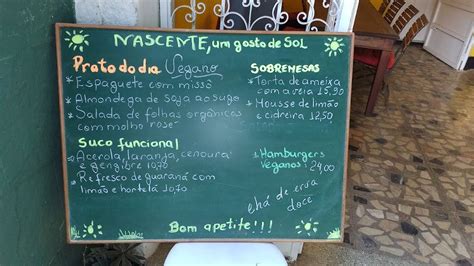 NASCENTE, um gosto de SOL
Prato do dia Vegano
* Espaguete com missô
* Almondega de Soja ao sugo
* Salada de folhas orgânicas
com molho rosê
Suco funcional
* Acerola, laranja, cenoura
e gengibre 10,70
* Refresco de guaraná com
limão e hortelã 10,70
SOBREMESAS
* Torta de ameixa
com aveia 15,90
* Mousse de limão
e cidreira 12,50
* Hamburgers
Veganos: 29,00
chá de erva
doce
Bom apetite!!!